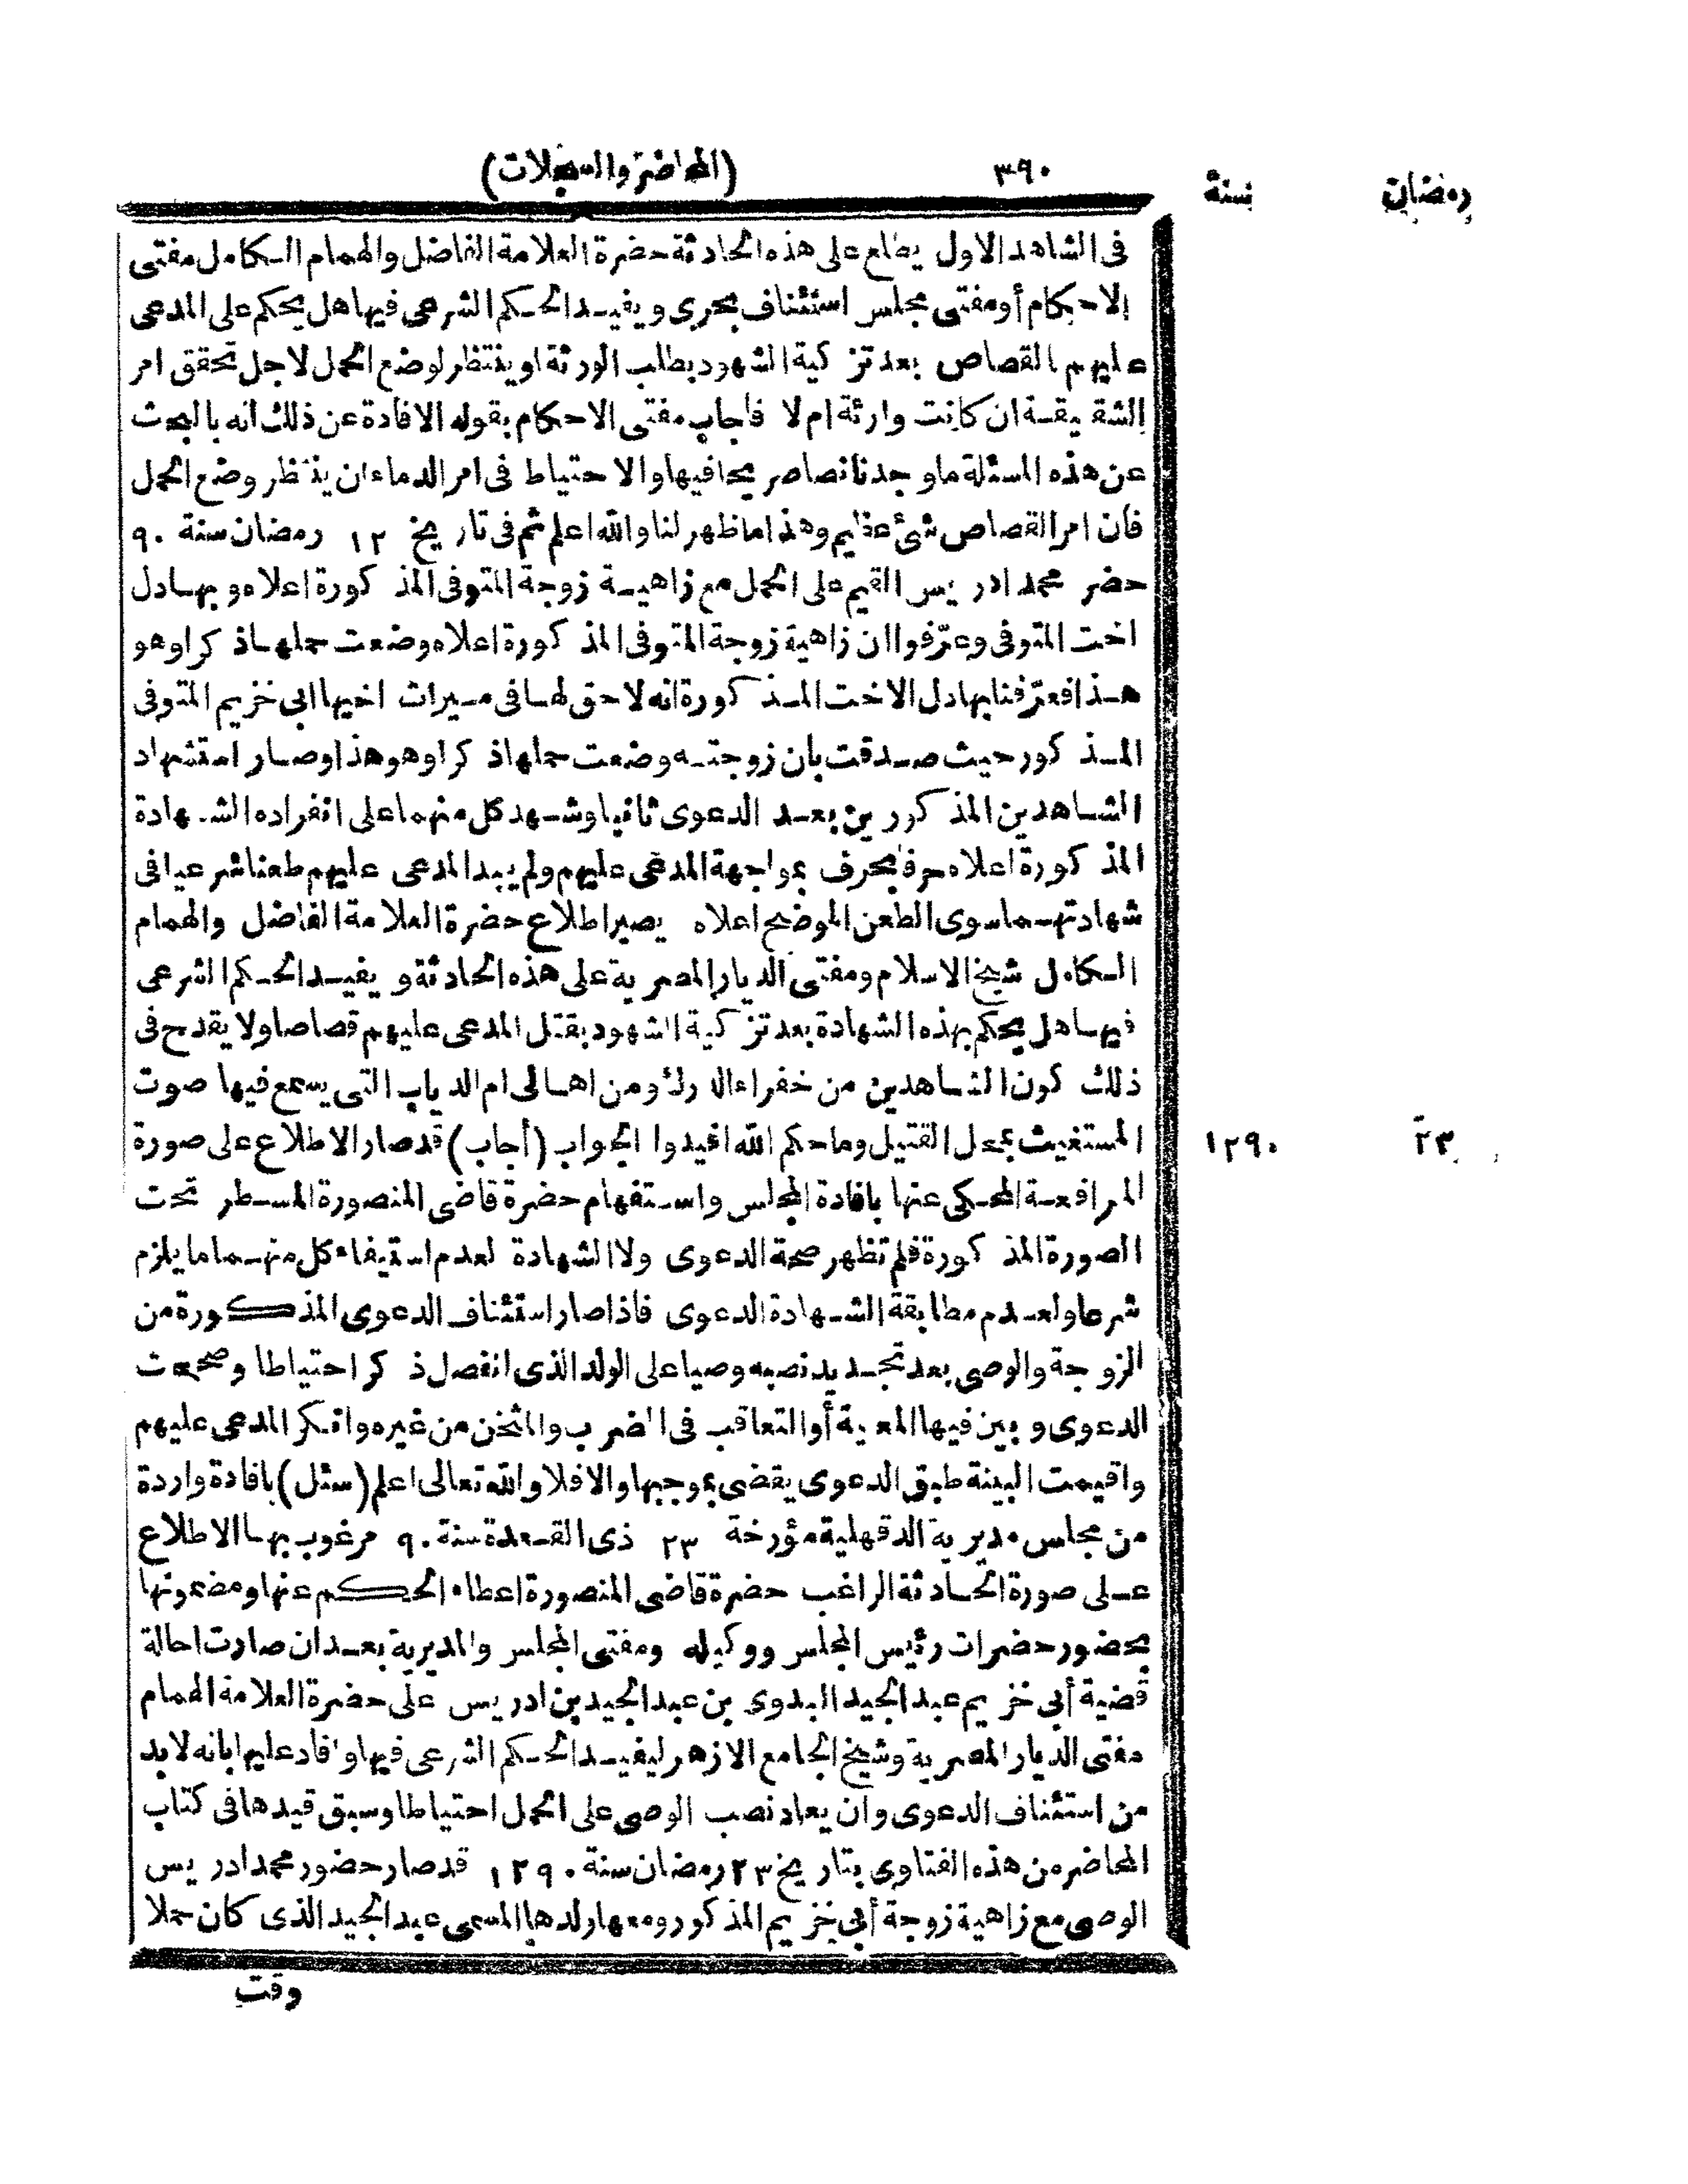 رمضان سنة ٣٩٠ (المحاضر والسجلات)
فى الشاهد الاول يطلع على هذه الحادثة حضرة العلامة الفاضل والهمام الكامل مفتى
الاحكام أو مفتى مجلس استئناف بحرى ويفيد الحكم الشرعى فيها هل يحكم على المدعى
عليهم بالقصاص بعد تزكية الشهود بطلب الورثة او ينتظر لوضع الحمل لاجل تحقق امر
الشقيقة ان كانت وارثة ام لا فاجاب مفتى الاحكام بقوله الافادة عن ذلك انه بالبحث
عن هذه المسئلة ما وجدنا نصا صريحا فيها والاحتياط فى امر الدماء ان ينتظر وضع الحمل
فان امر القصاص شئ عظيم وهذا ما ظهر لنا والله اعلم ثم فى تاريخ ١٢ رمضان سنة ٩٠
حضر محمد ادريس القيم على الحمل مع زاهية زوجة المتوفى المذكورة اعلاه وبهادل
اخت المتوفى وعرّفوا ان زاهية زوجة المتوفى المذكورة اعلاه وضعت حملها ذكرا وهو
هذا فعرّفنا بهادل الاخت المذكورة انه لا حق لها فى ميراث اخيها ابى خزيم المتوفى
المذكور حيث صدقت بان زوجته وضعت حملها ذكرا وهو هذا وصار استشهاد
الشاهدين المذكورين بعد الدعوى ثانيا وشهد كل منهما على انفراده الشهادة
المذكورة اعلاه حرفا بحرف بمواجهة المدعى عليهم ولم يبد المدعى عليهم طعنا شرعيا فى
شهادتهما سوى الطعن الموضح اعلاه يصير اطلاع حضرة العلامة الفاضل والهمام
الكامل شيخ الاسلام ومفتى الديار المصرية على هذه الحادثة ويفيد الحكم الشرعى
فيها هل يحكم بهذه الشهادة بعد تزكية الشهود بقتل المدعى عليهم قصاصا ولا يقدح فى
ذلك كون الشاهدين من خفراء الدرك ومن اهالى ام الدياب التى يسمع فيها صوت
المستغيث بمحل القتيل وما حكم الله افيدوا الجواب (أجاب) قد صار الاطلاع على صورة
٢٣ ١٢٩٠
المرافعة المحكى عنها بافادة المجلس واستفهام حضرة قاضى المنصورة المسطر تحت
الصورة المذكورة فلم تظهر صحة الدعوى ولا الشهادة لعدم استيفاء كل منهما ما يلزم
شرعا ولعدم مطابقة الشهادة الدعوى فاذا صار استئناف الدعوى المذكورة من
الزوجة والوصى بعد تجديد نصبه وصيا على الولد الذى انفصل ذكرا احتياطا وصححت
الدعوى وبين فيها المعية أو التعاقب فى الضرب والمثخن من غيره وانكر المدعى عليهم
واقيمت البينة طبق الدعوى يقضى بموجبها والا فلا والله تعالى اعلم (سئل) بافادة واردة
من مجلس مديرية الدقهلية مؤرخة ٢٣ ذى القعدة سنة ٩٠ مرغوب بها الاطلاع
على صورة الحادثة الراغب حضرة قاضى المنصورة اعطاء الحكم عنها ومضمونها
بحضور حضرات رئيس المجلس ووكيله ومفتى المجلس والمديرية بعد ان صارت احالة
قضية أبى خزيم عبد المجيد البدوى بن عبد المجيد بن ادريس على حضرة العلامة الهمام
مفتى الديار المصرية وشيخ الجامع الازهر ليفيد الحكم الشرعى فيها وافاد عليها بانه لا بد
من استئناف الدعوى وان يعاد نصب الوصى على الحمل احتياطا وسبق قيدها فى كتاب
المحاضر من هذه الفتاوى بتاريخ ٢٣ رمضان سنة ١٢٩٠ قد صار حضور محمد ادريس
الوصى مع زاهية زوجة أبى خزيم المذكور ومعها ولدها المسمى عبد المجيد الذى كان حملا
وقت